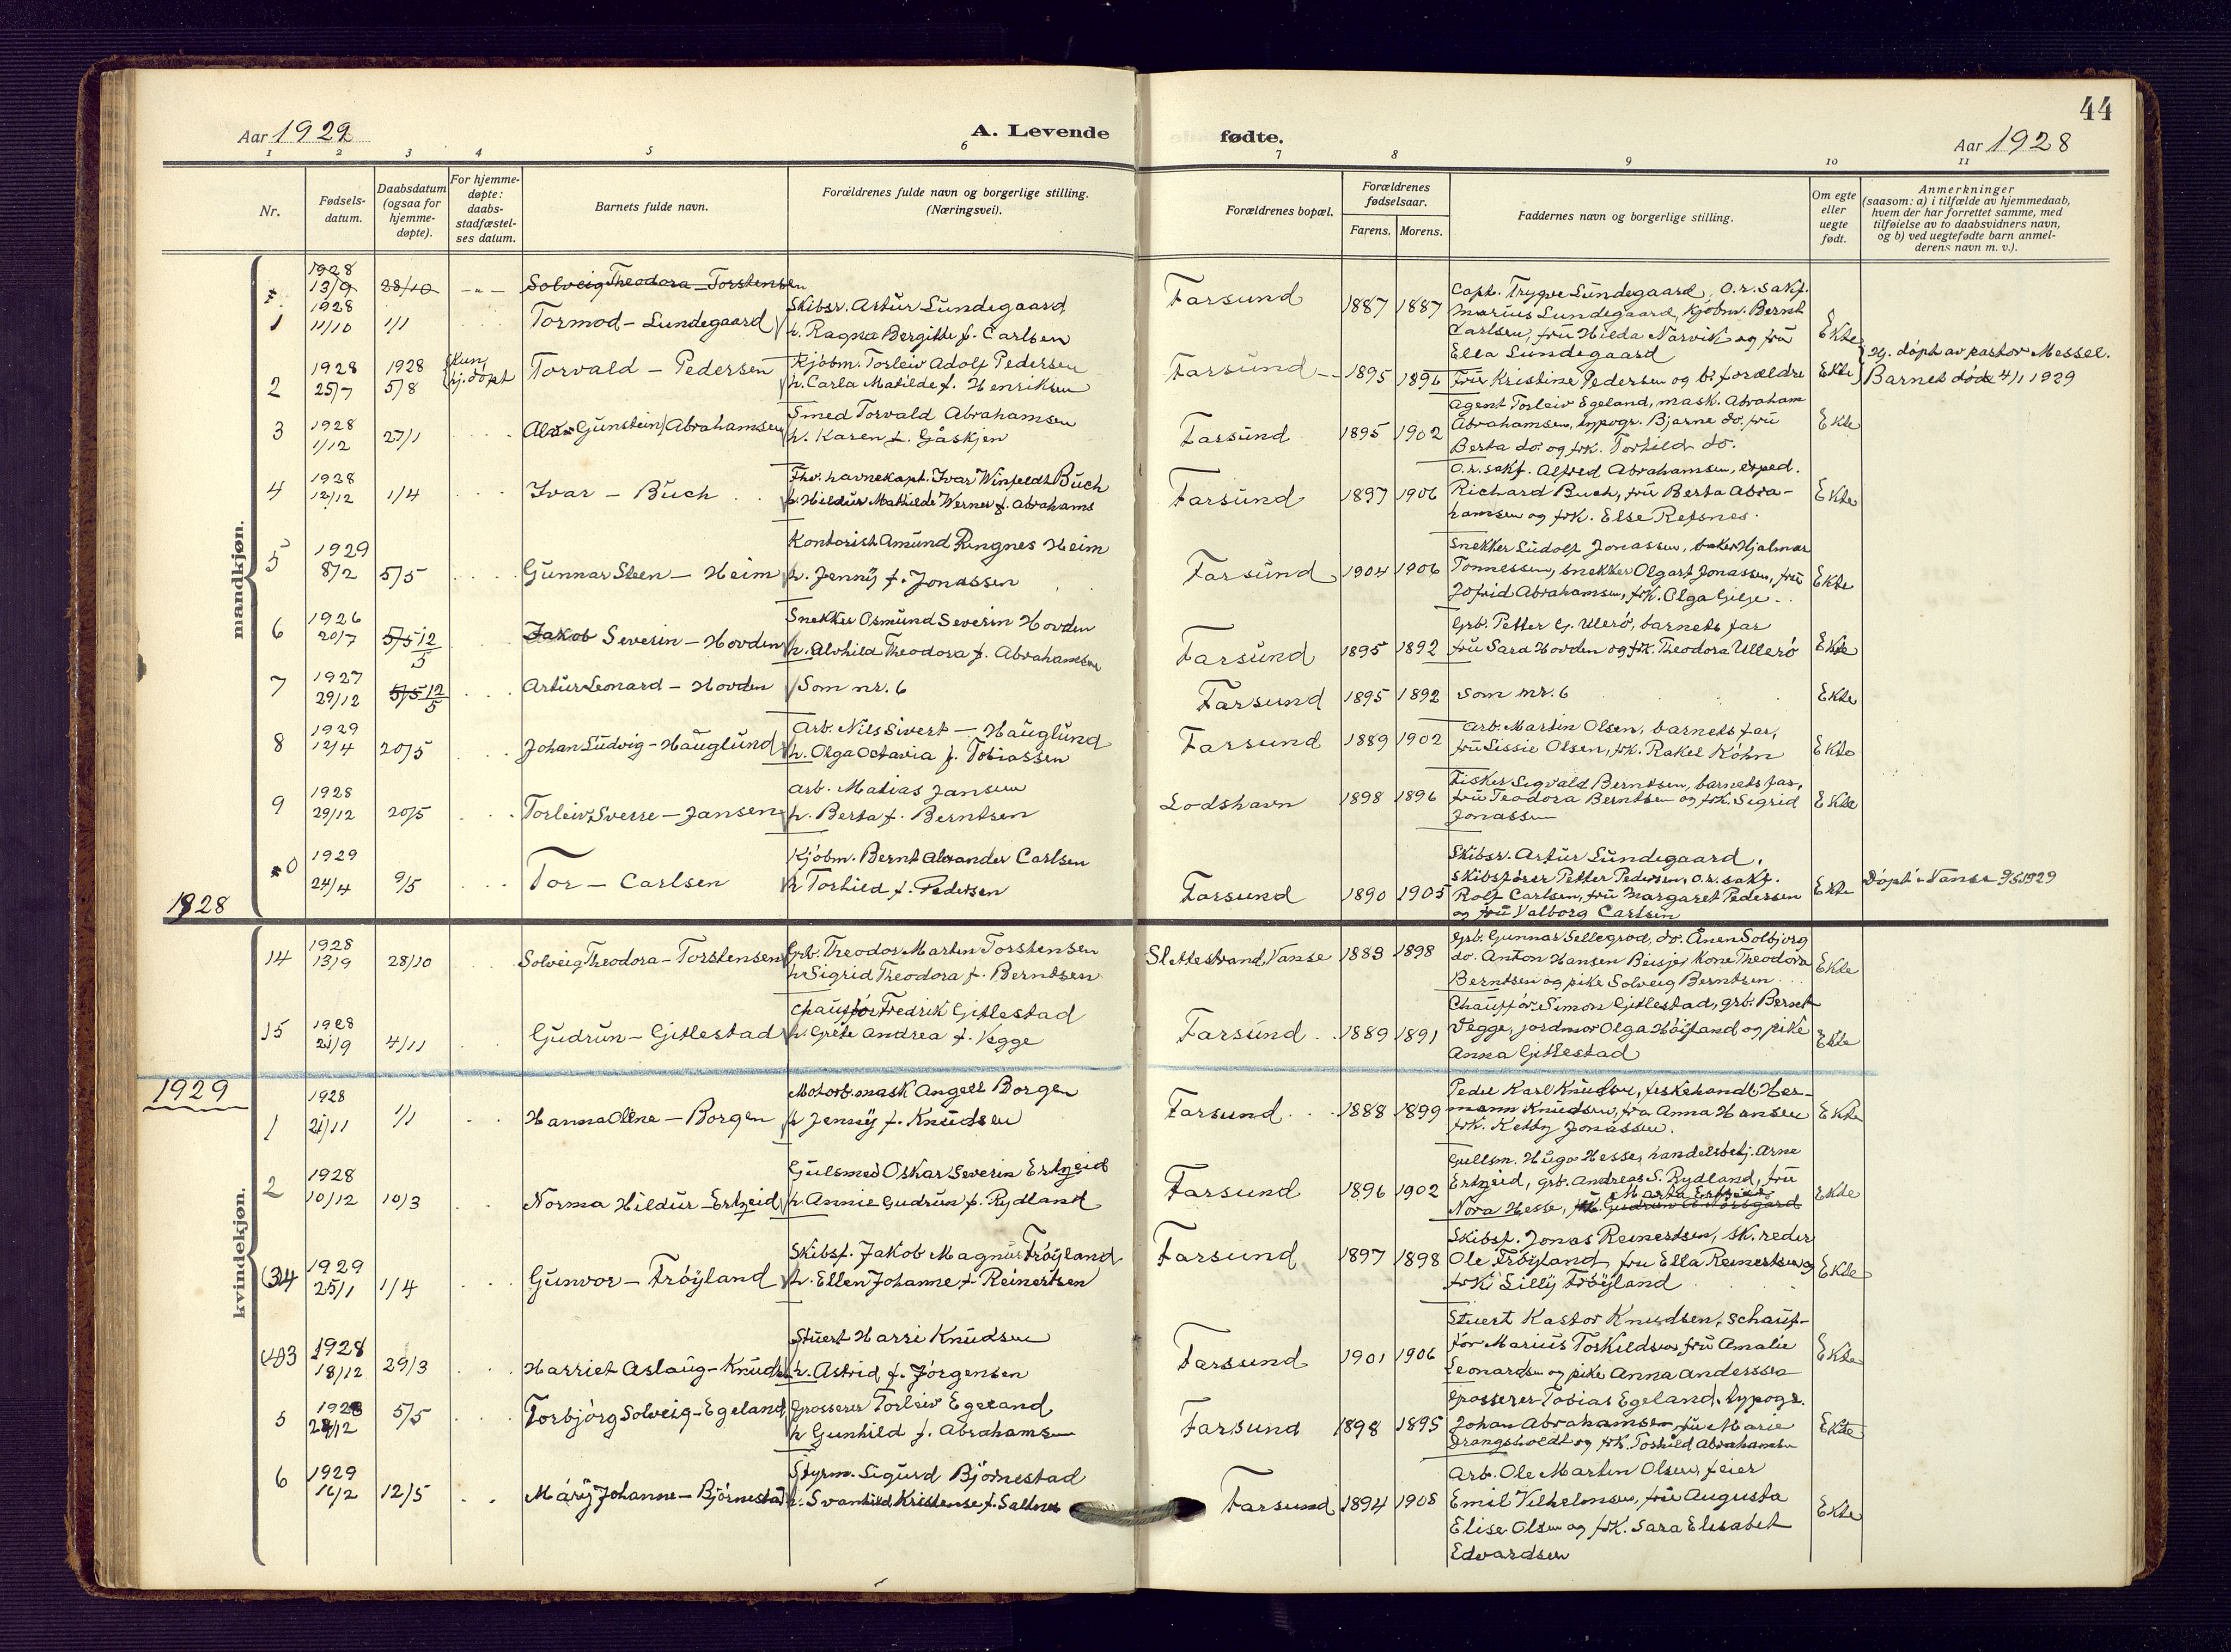 44
Aar 1929
A. Levende
fødte.
Aar 1928
1 2 3 4 5 6 7 8 9 10 11
Nr.
Fødsels-
datum.
Daabsdatum
(ogsaa for
hjemme-
døpte).
For hjemme-
døpte:
daabs-
stadfæstel-
ses datum.
Barnets fulde navn.
Forældrenes fulde navn og borgerlige stilling.
(Næringsvei).
Forældrenes bopæl.
Forældrenes
fødselsaar.
Farens. Morens.
Faddernes navn og borgerlige stilling.
Om egte
eller
uegte
født.
Anmerkninger
(saasom: a) i tilfælde av hjemmedaab,
hvem der har forrettet samme, med
tilføielse av to daabsvidners navn,
og b) ved uegtefødte barn anmel-
derens navn m. v.).
mandkjøn.
1928
13/9 28/10 -"- Solveig Theodora - Torstensen
1 1928
11/10 1/1 Tormod - Lundegaard
Skibsr. Artur Lundegaard
h. Ragna Bergitte f. Carlsen
Farsund 1887 1887
Capt. Trygve Lundegaard, o.r.sakf.
Marius Lundegaard, Kjøbm. Bernt
Carlsen, fru Hilda Narvik og fru
Ella Lundegaard
Ekte
2 1928
25/7 1928
5/8 Kun
hj. døpt Torvald - Pedersen
Kjøbm. Torleiv Adolf Pedersen
h. Carla Matilde f. Henriksen
Farsund 1895 1896
Fru Kristine Pedersen og b. forældre
Ekte
Hj. døpt av pastor Messel.
Barnet døde 4/1 1929
3 1928
1/12 27/1 Gunstein Abrahamsen
Smed Torvald Abrahamsen
h. Karen f. Gåskjen
Farsund 1895 1902
Agent Torleiv Egeland, mask. Abraham
Abrahamsen, typogr. Bjarne do. fru
Berta do og frk. Torhild do.
Ekte
4 1928
12/12 1/4 Ivar - Buch
Fhv. havnekapt. Ivar Winfeldt Buch
h. Hildur Mathilde Werner f. Abrahams
Farsund 1897 1906
O.r.sakf. Alfred Abrahamsen, exped.
Richard Buch, fru Berta Abra-
hamsen og frk. Else Refsnes.
Ekte
5 1929
8/2 5/5 Gunnar Steen - Heim
Kontorist Amund Ringnes Heim
h. Jenny f. Jonassen
Farsund 1904 1906
Snekker Ludolf Jonassen, baker Hjalmar
Tønnessen, snekker Olgart Jonassen, fru
Jofrid Abrahamsen, frk. Olga Gilje
Ekte
6 1926
20/7 5/5 12/5 Jakob Severin - Hovden
Snekker Osmund Severin Hovden
h. Alvhild Theodora f. Abrahamsen
Farsund 1895 1892
Grb. Petter G. Ulerø, barnets far
fru Sara Hovden og frk. Theodora Ullerø
Ekte
7 1927
29/12 5/5 12/5 Artur Leonard - Hovden
Som nr. 6
Farsund 1895 1892
Som nr. 6
Ekte
8 1929
12/4 20/5 Johan Ludvig - Hauglund
Arb. Nils Sivert - Hauglund
h. Olga Octavia f. Tobiassen
Farsund 1889 1902
Arb. Martin Olsen, barnets far,
fru Lissie Olsen, frk. Rakel Køhn
Ekte
9 1928
29/12 20/5 Torleiv Sverre - Jansen
Arb. Matias Jansen
h. Berta f. Berntsen
Lodshavn 1898 1896
Fisker Sigvald Berntsen, barnets far,
fru Teodora Berntsen og frk. Sigrid
Jonassen
Ekte
10 1929
24/4 9/5 Tor - Carlsen
Kjøbm. Bernt Alexander Carlsen
h Torhild f. Pedersen
Farsund 1890 1905
Skibsr. Artur Lundegaard,
skibsfører Petter Pedersen, o.r.sakf.
Rolf Carlsen, fru Margaret Pedersen
og fru Valborg Carlsen
Ekte
Døpt i Vanse 9/5 1929
1928
kvindekjøn.
14 1928
13/9 28/10 Solveig Theodora - Torstensen
Grb. Theodor Martin Torstensen
h Sigrid Theodora f. Berntsen
Slettestrand, Vanse 1883 1898
Grb. Gunnar Sellegrod, do. Ånen Solbjorg
do. Anton Hansen Beisje, Kone Theodora
Berntsen og pike Solveig Berntsen
Ekte
15 1928
21/9 4/11 Gudrun - Gitlestad
Chauffør Fredrik Gitlestad
h. Grete Andrea f. Vegge
Farsund 1889 1891
Chauffør Simon Gitlestad, grb. Bernt
Vegge, jordmor Olga Høiland og pike
Anna Gitlestad
Ekte
1929
1 1928
21/11 1/1 Hanna Oline - Borgen
Motorb.mask Angell Borgen
h Jenny f. Knudsen
Farsund 1888 1899
Peder Karl Knudsen, fiskehandl. Her-
mann Knudsen, fru Anna Hansen
frk. Ketty Jonassen.
Ekte
2 1928
10/12 10/3 Norma Hildur - Ertzeid
Gulsmed Oskar Severin Ertzeid
h Annie Gudrun f. Rydland
Farsund 1896 1902
Gullsm. Hugo Hesse, handelsbetj. Arne
Ertzeid, grb. Andreas S. Rydland, fru
Marta Ertzeid
Nora Hesse,
Ekte
(3)4 1929
25/1 1/4 Gunvor - Frøyland
Skibsf. Jakob Magnus Frøyland
h. Ellen Johanne f. Reinertsen
Farsund 1897 1898
Skibsf. Jonas Reinertsen, sk.reder
Ole Frøyland, fru Ella Reinertsen og
frk. Lilly Frøyland
Ekte
(4)3 1928
18/12 29/3 Harriet Aslaug - Knudsen
Stuert Harri Knudsen
h. Astrid f. Jørgensen
Farsund 1901 1906
Stuert Kastor Knudsen, schauf-
før Marius Torkildsen, fru Amalie
Leonardsen og pike Anna Anderssen
Ekte
5 1928
28/12 5/5 Torbjørg Solveig - Egeland
Grosserer Torleiv Egeland
h Gunhild f. Abrahamsen
Farsund 1898 1895
Grosserer Tobias Egeland, typogr.
Johan Abrahamsen, fru Marie
Drangsholdt og frk. Torhild Abrahamsen
Ekte
6 1929
16/2 12/5 Máry Johanne - Bjørnestad
Styrm. Sigurd Bjørnestad
h. Svanhild Kristense f. Saltnes
Farsund 1894 1908
Arb. Ole Martin Olsen, feier
Emil Vilhelmsen, fru Augusta
Elise Olsen og frk. Sara Elisabet
Edvardsen
Ekte